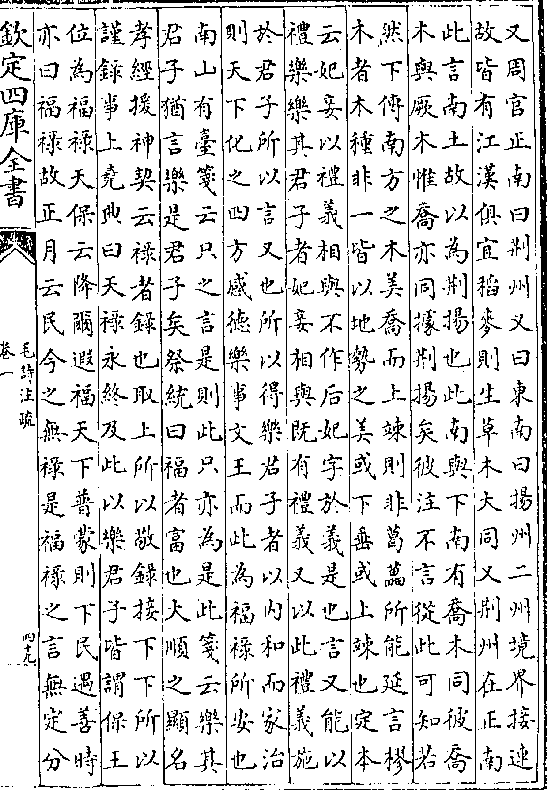 又周官正南曰荆州又曰東南曰揚州二州境界接連
故皆有江漢俱宜稻麥則生草木大同又荆州在正南
此言南土故以為荆揚也此南與下南有喬木同彼喬
木與厥木惟喬亦同據荆揚矣彼注不言從此可知若
然下傳南方之木美喬而上竦則非葛藟所能延言樛
木者木種非一皆以地勢之美或下垂或上竦也定本
云妃妾以禮義相與不作后妃字於義是也言又能以
禮樂樂其君子者妃妾相與既有禮義又以此禮義施
於君子所以言又也所以得樂君子者以内和而家治
則天下化之四方感德樂事文王而此為福禄所安也
南山有臺箋云只之言是則此只亦為是此箋云樂其
君子猶言樂是君子矣祭統曰福者富也大順之顯名
孝經援神契云禄者録也取上所以敬録接下下所以
謹録事上堯典曰天禄永終及此以樂君子皆謂保王
位為福禄天保云降爾遐福天下普蒙則下民遇善時
亦曰福禄故正月云民今之無禄是福禄之言無定分
欽定四庫全書
毛詩注疏
卷一
四十九